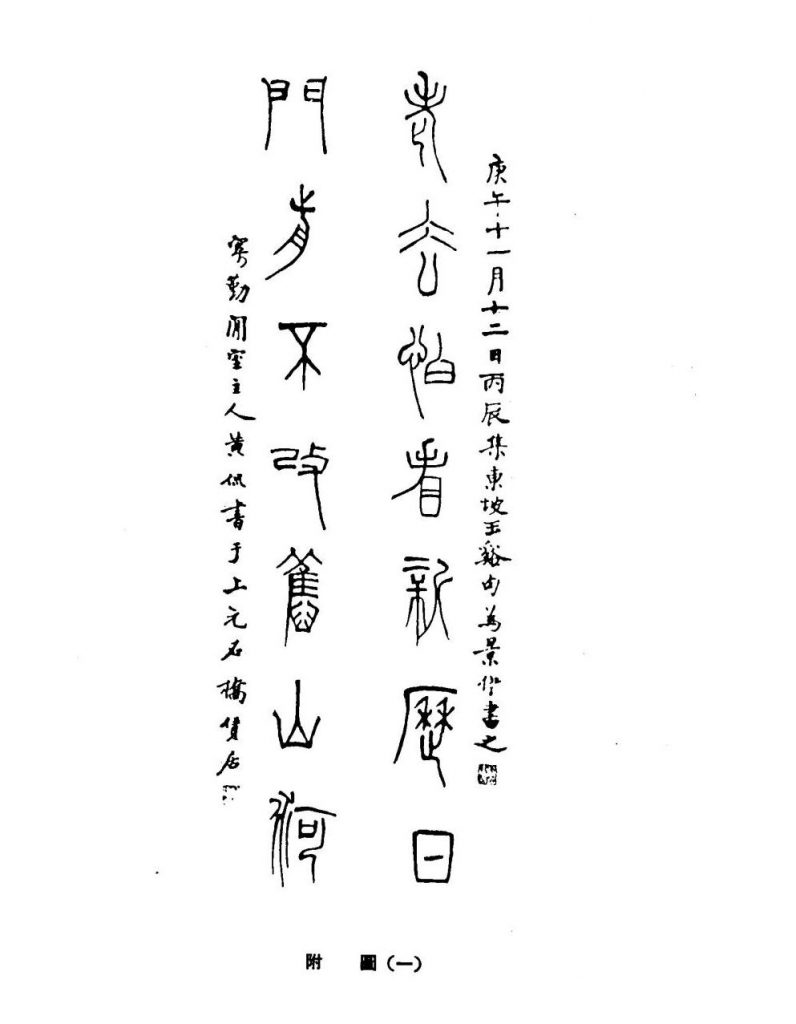 庚午十一月十二日丙辰集東坡玉谿句為景伊書之
老去怕看新歷日
門前不改舊山河
寄勤閒室主人黃侃書于上元石橋居
附圖(一)